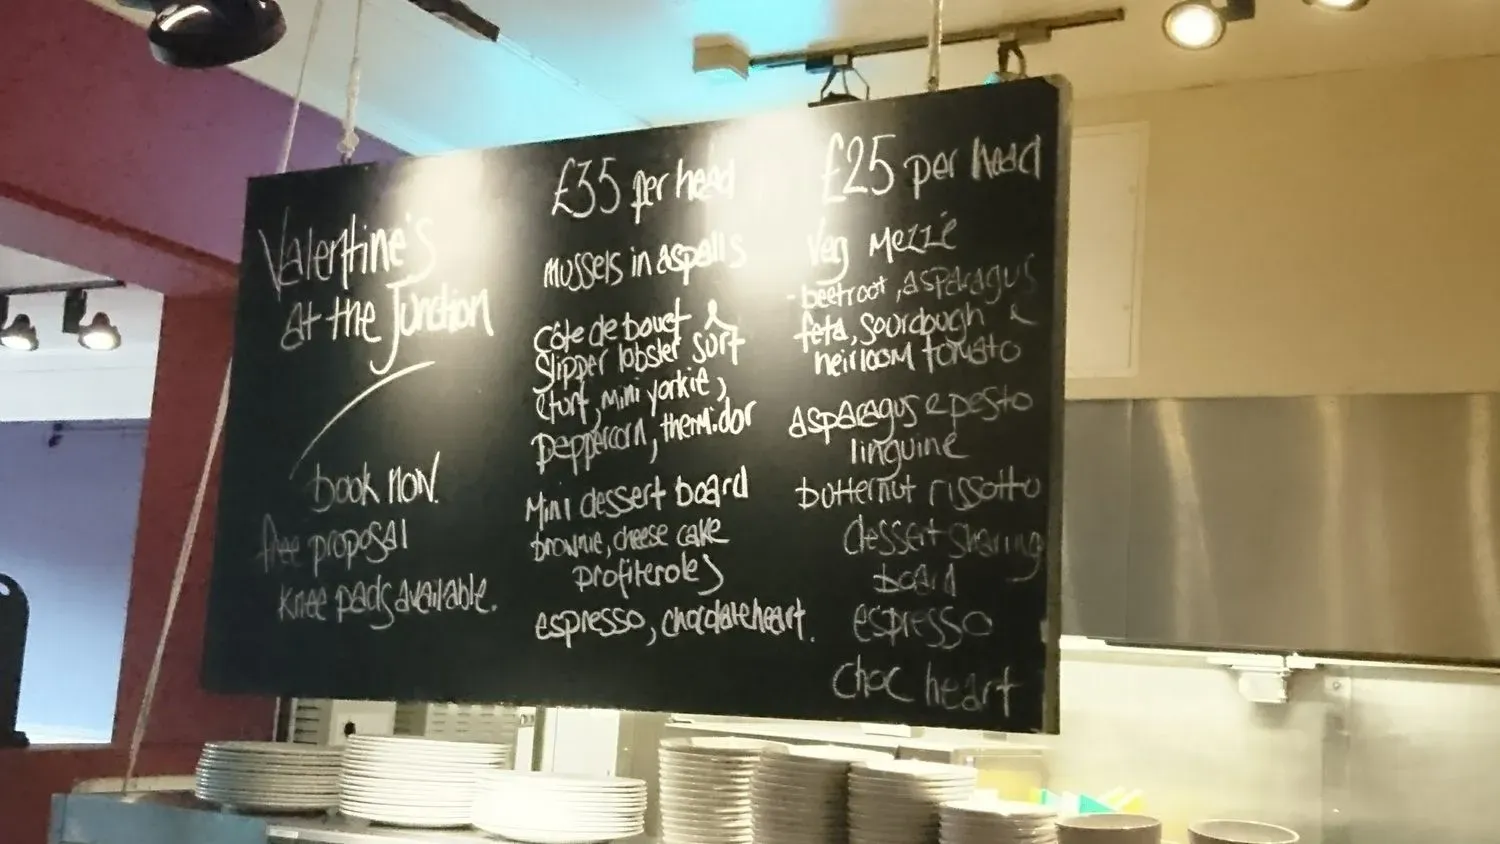 Valentine's
at the Junction
book now.
free proposal
knee pads available.
£35 per head
mussels in aspalls
côte de bouef &
slipper lobster surf
e turf, mini yorkie,
peppercorn, thermidor
Mini dessert board
brownie, cheese cake
profiteroles
espresso, chocolate heart.
£25 per head
Veg Mezzé
- beetroot, asparagus
feta, sourdough &
heirloom tomato
asparagus e pesto
linguine
butternut rissotto
dessert sharing
board
espresso
choc heart